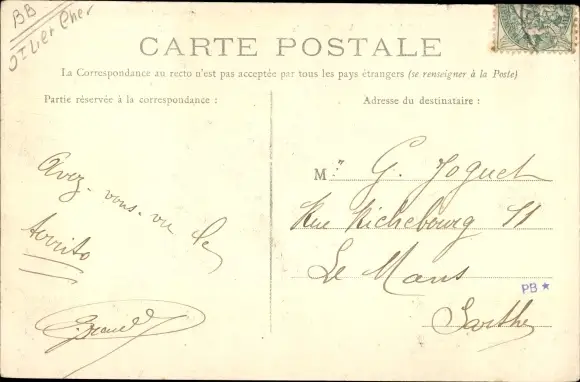 BB
CARTE POSTALE
La Correspondance au recto n'est pas acceptée par tous les pays étrangers (se renseigner à la Poste)
Partie réservée à la correspondance :
Adresse du destinataire :
Avez-vous vu le
M.r G. Joguet
Rue Richebourg 51
Le Mans
Sarthe
PB ★